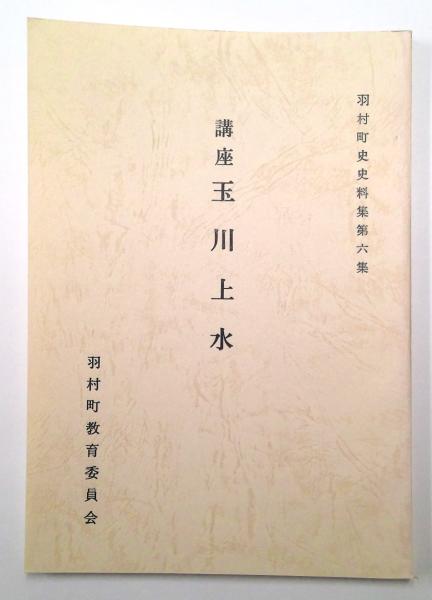 羽村町史史料集第六集
講座 玉川上水
羽村町教育委員会